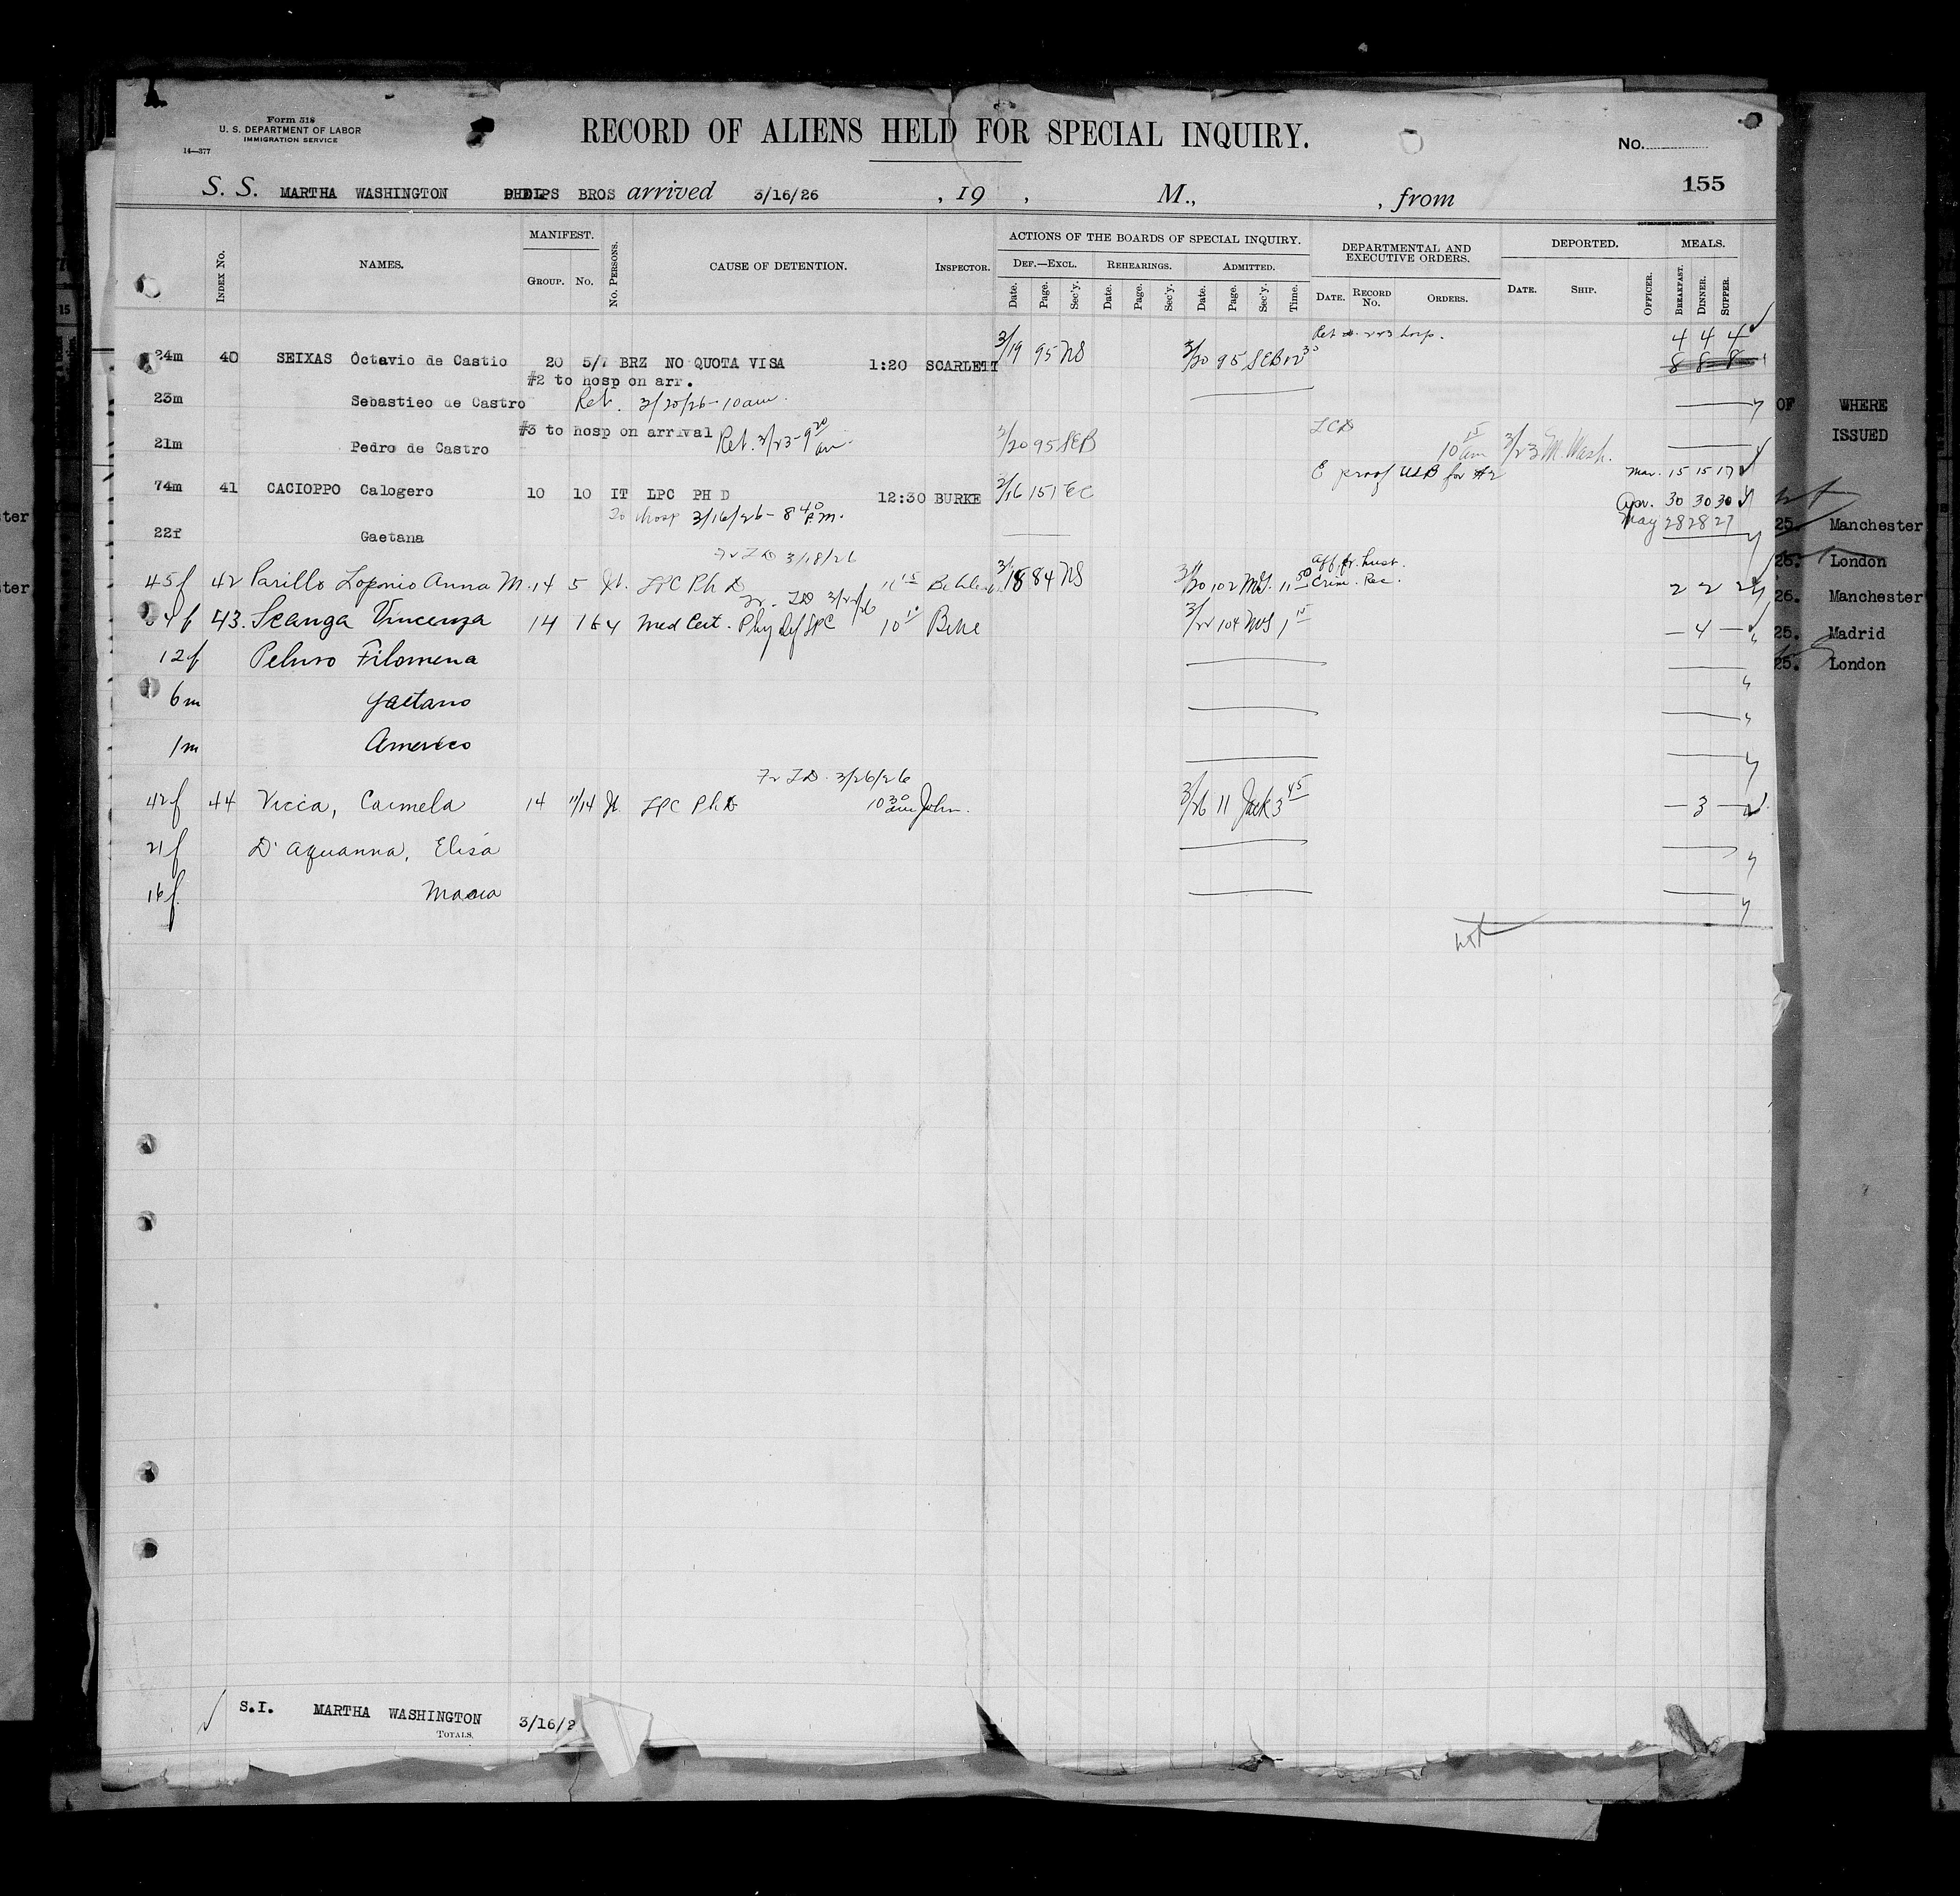 Form 518
U. S. DEPARTMENT OF LABOR
IMMIGRATION SERVICE
14—377
RECORD OF ALIENS HELD FOR SPECIAL INQUIRY.
No.
S. S. MARTHA WASHINGTON PHELPS BROS arrived 3/16/26 , 19 , M., , from
155
INDEX No. NAMES. MANIFEST. GROUP. No. No. PERSONS. CAUSE OF DETENTION. INSPECTOR.
ACTIONS OF THE BOARDS OF SPECIAL INQUIRY.
DEF.—EXCL. REHEARINGS. ADMITTED.
Date. Page. Sec'y. Date. Page. Sec'y. Date. Page. Sec'y. Time.
DEPARTMENTAL AND EXECUTIVE ORDERS.
DATE. RECORD No. ORDERS.
DEPORTED.
DATE. SHIP. OFFICER.
MEALS.
BREAKFAST. DINNER. SUPPER.
4 4 4
24m 40 SEIXAS Octavio de Castio 20 5/7 BRZ NO QUOTA VISA 1:20 SCARLETT 3/19 95 NS 3/20 95 SEB 8 8 8
#2 to hosp on arr.
23m Sebastieo de Castro Ret. 3/20/26-10am.
#3 to hosp on arrival Ret. 3/23-9 20 am
21m Pedro de Castro 3/20 95 SEB 10 15 am 3/23 M. Wash.
E proof USB for #2 Mar. 15 15 17
74m 41 CACIOPPO Calogero 10 10 IT LPC PH D 12:30 BURKE 3/16 151 EC Apr. 30 30 30
To hosp 3/16/26-8 40 P.m. May 28 28 27
22f Gaetana
3/18/26
45f 42 Parillo Anna M. 14 5 It. LPC Ph D 11 15 3/18 84 NS 3/20 102 11 50 Aff. fr. husb. Crim. Rec. 2 2 2
43. Scanga Vincenza 14 16 4 Med Cert. Phy Def LPC 10 10 3/22 104 1 15 — 4 —
12f Peluso Filomena
6m Gaetano
1m Americo
3/26/26
42f 44 Vicca, Carmela 14 11/14 It LPC Ph D 10 30 am John. 3/26 11 Jack 3 45 — 3 —
21f D'Aquanna, Elisa
16f. Maria
S.I. MARTHA WASHINGTON 3/16/2
TOTALS,
OF WHERE
ISSUED
25. Manchester
26. London
26. Manchester
25. Madrid
25. London
ter
ter
15